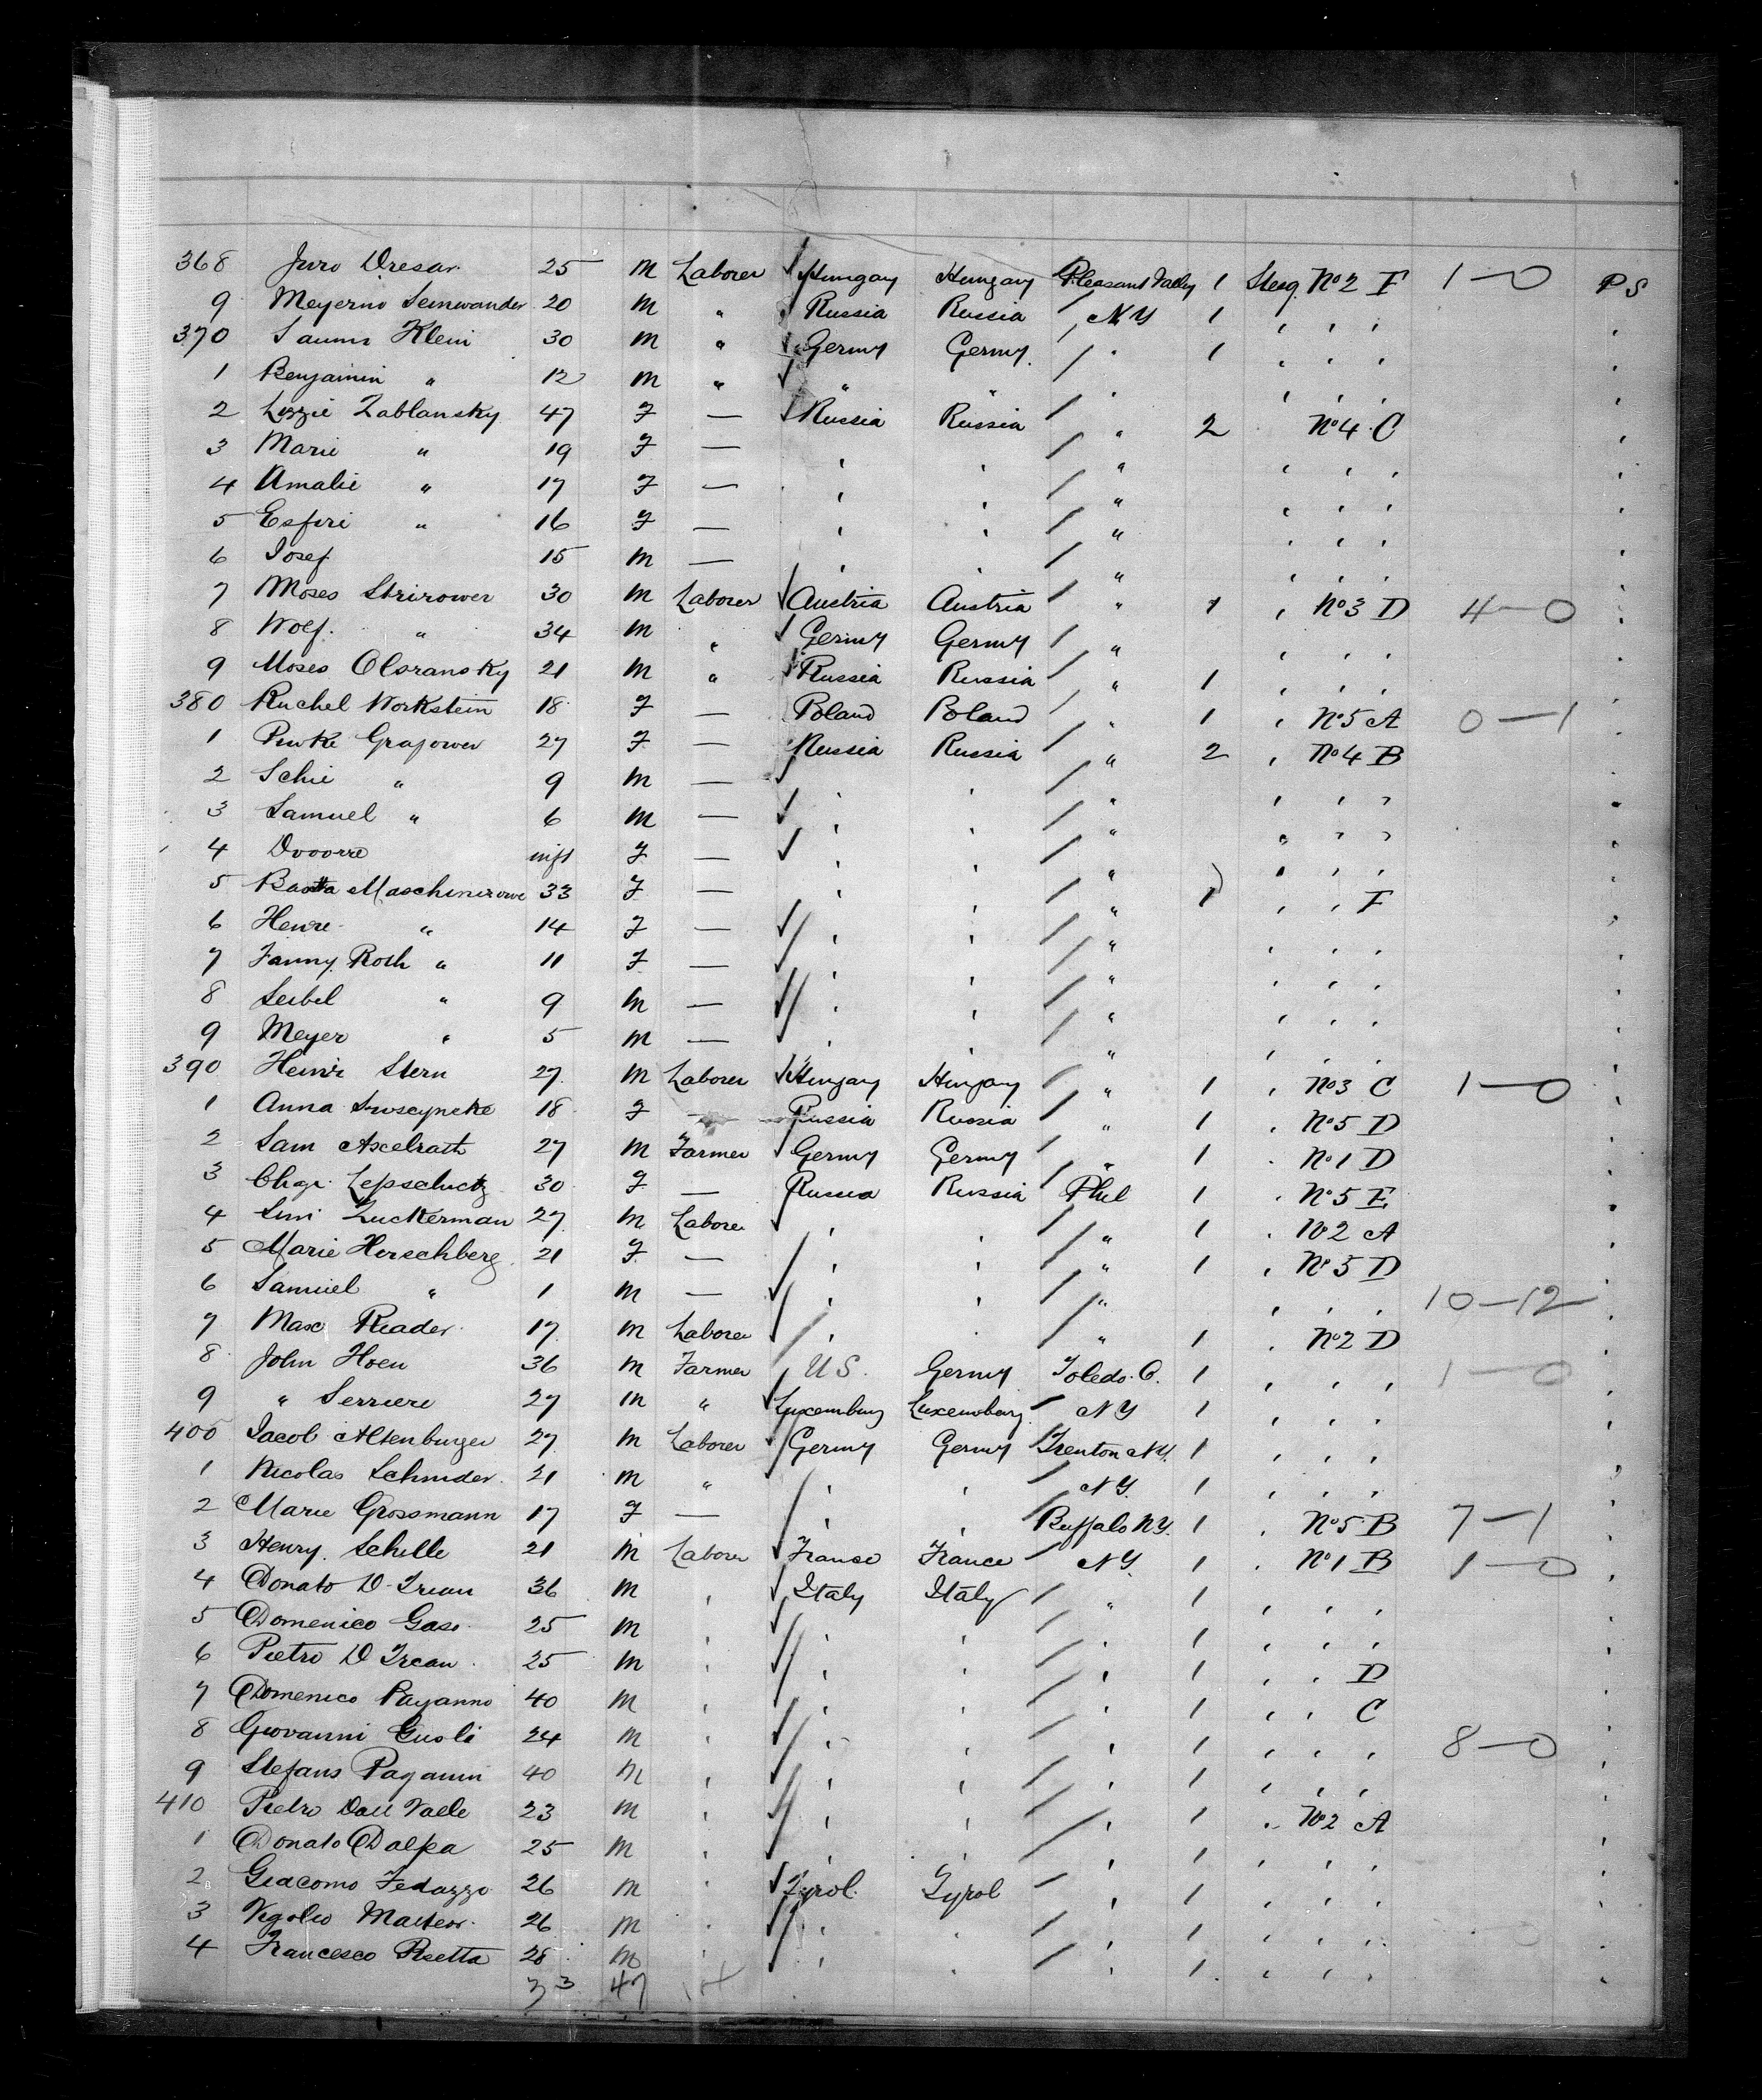 368 Juro Dresar 25 M Laborer Hungary Hungary Pleasant Valley 1 Sterg. No 2 F 1—0 PS
9 Meyerno Leinwander 20 M " Russia Russia NY 1 " " "
370 Klein 30 M " Germy Germy " 1 " " "
1 Benjamin " 12 M " " " " " " "
2 Lizzie Zablansky 47 F — Russia Russia " 2 No 4 C
3 Marie " 19 F — " " " " " "
4 Amalie " 17 F — " " " " " "
5 Esfiri " 16 F — " " " " " "
6 Josef 15 M — " " " " " "
7 Moses Strirower 30 M Laborer Austria Austria " 1 " No 3 D 4—0
8 Wolf " 34 M " Germy Germy " " " "
9 Moses Olsransky 21 M " Russia Russia " 1 " " "
380 Ruchel Workstein 18 F — Poland Poland " 1 " No 5 A 0—1
1 Grafower 27 F — Russia Russia " 2 " No 4 B
2 Schie " 9 M — " " " " " "
3 Samuel " 6 M — " " " " " "
4 inft F — " " " " " "
5 33 F — " " " 1 " " F
6 Henre " 14 F — " " " " " "
7 Fanny Roth " 11 F — " " " " " "
8 Leibel " 9 M — " " " " " "
9 Meyer " 5 M — " " " " " "
390 Stern 27 M Laborer Hungary Hungary " 1 " No 3 C 1—0
1 Anna 18 F — Russia Russia " 1 " No 5 D
2 Sam Axelrath 27 M Farmer Germy Germy " 1 " No 1 D
3 30 F — Russia Russia Phil 1 " No 5 E
4 Zuckerman 27 M Laborer " " " 1 " No 2 A
5 Marie Herschberg 21 F — " " " 1 " No 5 D
6 Samuel " 1 M — " " " " " " 10—12
7 Max Reader 17 M Laborer " " " 1 " No 2 D
8 John Hoen 36 M Farmer US. Germy Toledo. O. 1 " " " 1—0
9 " Serriere 27 M " Luxemburg Luxemburg NY 1 " " "
400 Jacob Altenburger 27 M Laborer Germy Germy Trenton NY. 1 " " "
1 Nicolas Schnider 21 M " " " NY. 1 " " "
2 Marie Grossmann 17 F — " " Buffalo NY. 1 " No 5 B 7—1
3 Henry Schille 21 M Laborer France France NY. 1 " No 1 B 1—0
4 Donato 36 M " Italy Italy " 1 " " "
5 Domenico Gaso 25 M " " " " 1 " " "
6 Pietro 25 M " " " " 1 " " D
7 Domenico Payanno 40 M " " " " 1 " " C
8 Giovanni Gusli 24 M " " " " 1 " " " 8—0
9 Stefano Paganin 40 M " " " " 1 " " "
410 Pietro Dall Valle 23 M " " " " 1 " No 2 A
1 Donato Dalpa 25 M " " " " 1 " " "
2 Giacomo Fedazzo 26 M " Tyrol Tyrol " 1 " " "
3 26 M " " " " 1 " " "
4 Francesco Pisetta 28 M " " " " 1 " " "
33 47 14